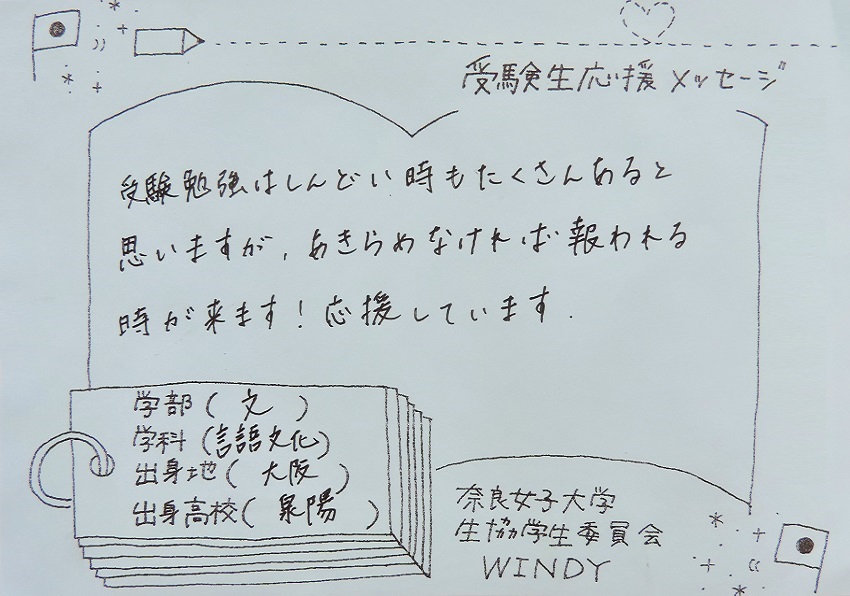 受験生応援メッセージ
受験勉強はしんどい時もたくさんあると
思いますが、あきらめなければ報われる
時が来ます！応援しています.
学部（文）
学科（言語文化）
出身地（大阪）
出身高校（泉陽）
奈良女子大学
生協学生委員会
WINDY